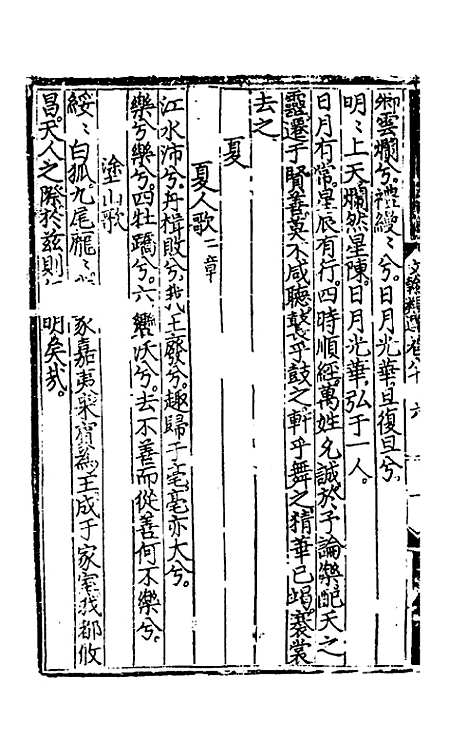 卿雲爛兮。禮縵〻兮。日月光華。旦復旦兮。
明〻上天。爛然星陳。日月光華。弘于一人。
日月有常。星辰有行。四時順經。萬姓允誠。於予論樂。配天之
靈。遷于賢善。莫不咸聽。鼚乎鼓之。軒乎舞之。精華已竭。褰裳
去之
夏
夏人歌二章
江水沛兮。舟楫敗兮。我王廢兮。趣歸于亳。亳亦大兮。
樂兮樂兮。四牡蹻兮。六轡沃兮。去不善而從善。何不樂兮。
塗山歌
綏〻白狐。九尾龐〻。家嘉夷。來賓為王。成于家室。我都攸
昌。天人之際。於兹則。明矣哉。